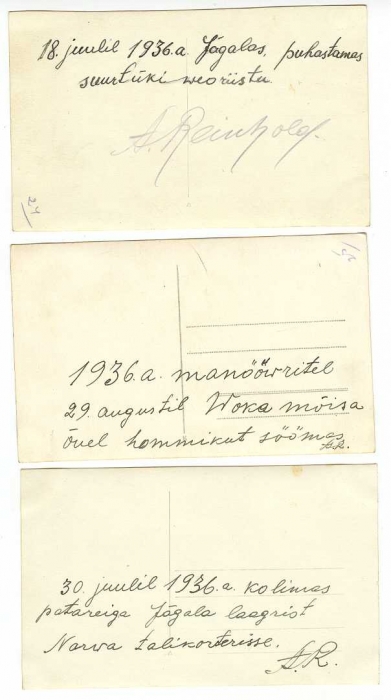 18. juulil 1936.a. Jägalas, puhastamas
suurtüki weoriista
A. Reinhold.
24
1936.a. manööwritel
29. augustil Woka mõisa
õuel hommikut söömas
A.R.
30. juulil 1936.a. kolimas
patareiga Jägala laagrist
Narwa talikorterisse.
A.R.